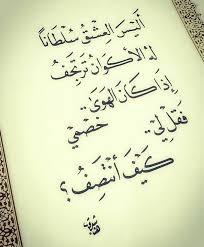 أَلَيْسَ العِشْقُ سُلْطَاناً
لَهُ الأَكْوَانُ تَرْتَجِفُ
إِذَا كَانَ الهَوَىٰ..
فَقُلْ لِي.. خَصْمِي
كَيْفَ أَنْتَصِفُ؟